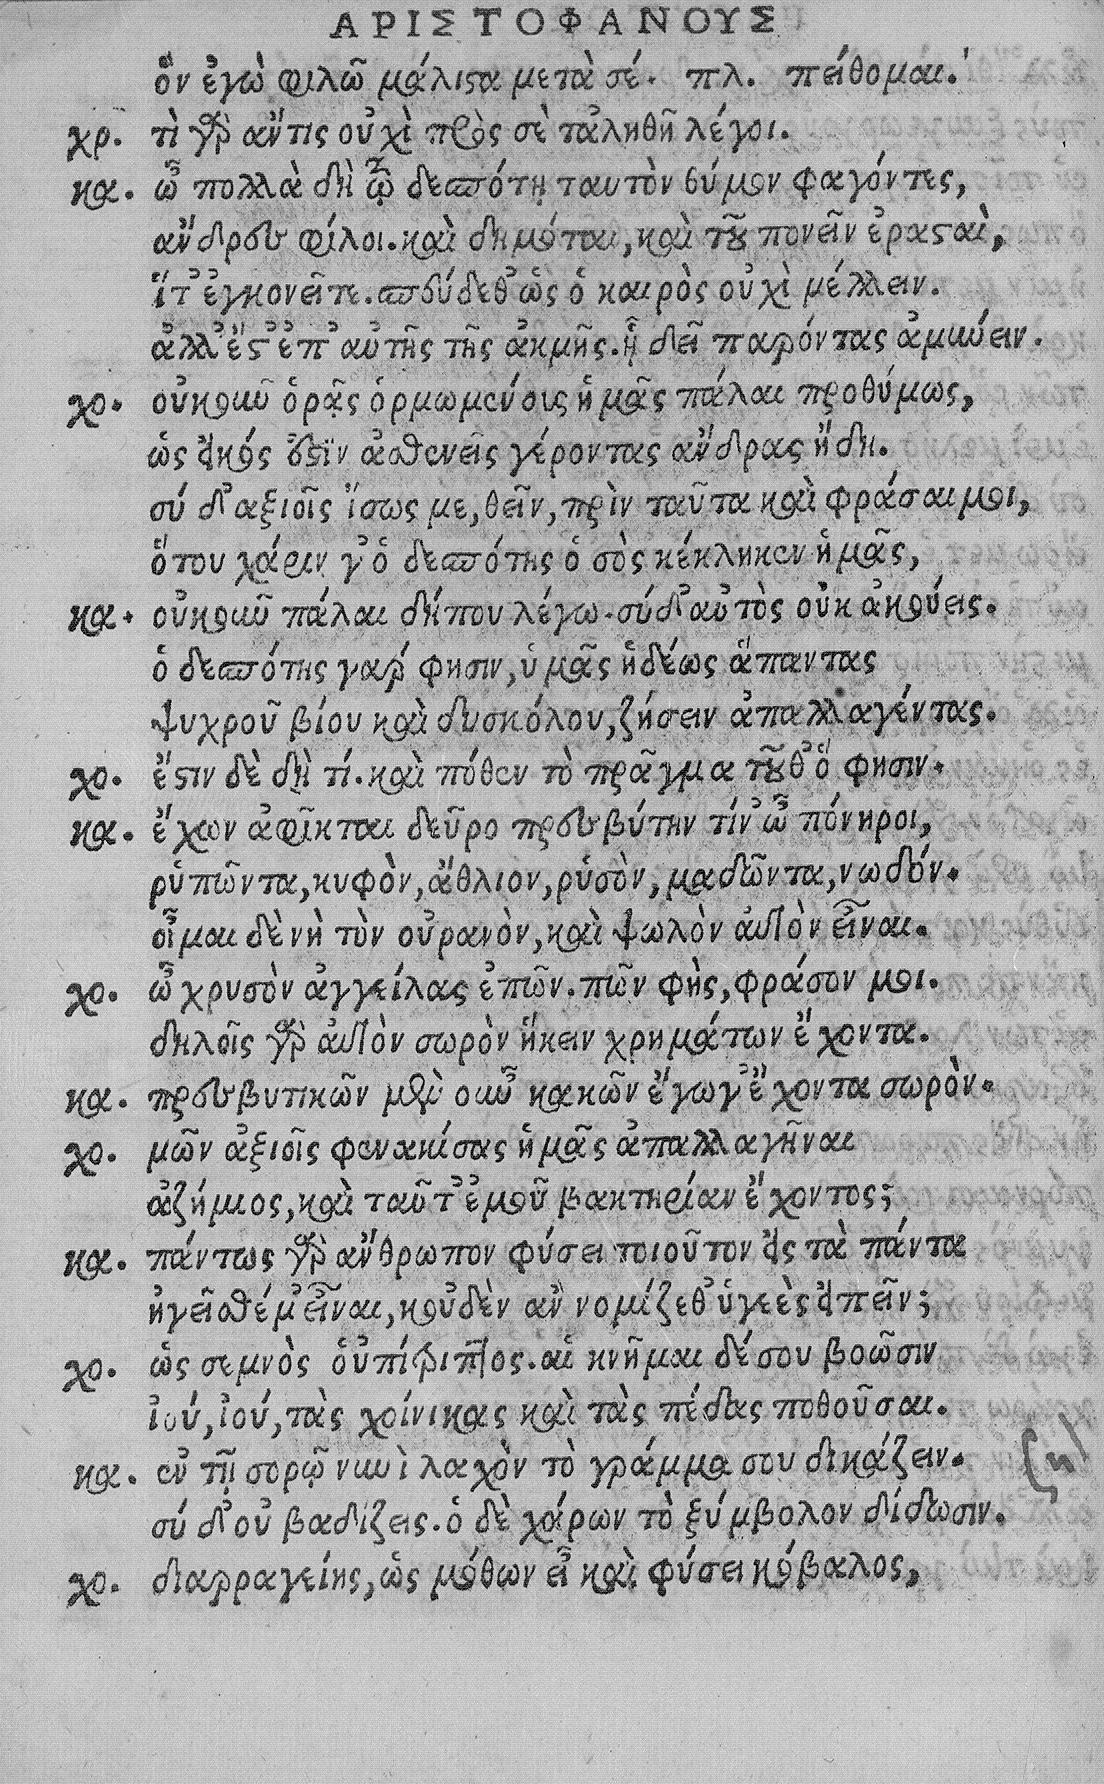 ΑΡΙΣΤΟΦΑΝΟΥΣ
ὃν ἐγὼ φιλῶ μάλιστα μετὰ σέ. πλ. πείθομαι.
χρ. τὶ γὰρ ἄν τις οὐχὶ πρὸς σὲ τἀληθῆ λέγοι.
κα. ὦ πολλὰ δὴ τῷ δεσπότῃ ταυτὸν θύμον φαγόντες,
ἄνδρες φίλοι. καὶ δημόται, καὶ τοῦ πονεῖν ἐρασταὶ,
ἴτ' ἐγκονεῖτε. σπεύδεθ' ὡς ὁ καιρὸς οὐχὶ μέλλειν.
ἀλλ' ἔστ' ἐπ' αὐτῆς τῆς ἀκμῆς. ᾗ δεῖ παρόντας ἀμύνειν.
χο. οὐκοῦν ὁρᾷς ὁρμωμένους ἡμᾶς πάλαι προθύμως,
ὡς εἰκός ἐστὶν ἀσθενεῖς γέροντας ἄνδρας ἤδη.
σύ δ' ἀξιοῖς ἴσως με, θεῖν, πρὶν ταῦτα καὶ φράσαι μοι,
ὅτου χάριν γ' ὁ δεσπότης ὁ σὸς κέκληκεν ἡμᾶς,
κα. οὐκοῦν πάλαι δήπου λέγω. σύ δ' αὐτὸς οὐκ ἀκούεις.
ὁ δεσπότης γάρ φησιν, ὑμᾶς ἡδέως ἅπαντας
ψυχροῦ βίου καὶ δυσκόλου, ζήσειν ἀπαλλαγέντας.
χο. ἔστιν δὲ δὴ τί. καὶ πόθεν τὸ πρᾶγμα τοῦθ' ὅ φησιν.
κα. ἔχων ἀφῖκται δεῦρο πρεσβύτην τίν' ὦ πόνηροι,
ῥυπῶντα, κυφὸν, ἄθλιον, ῥυσὸν, μαδῶντα, νωδόν.
οἶμαι δὲ νὴ τὸν οὐρανὸν, καὶ ψωλὸν αὐτὸν εἶναι.
χο. ὦ χρυσὸν ἀγγείλας ἐπῶν. πῶν φής, φράσον μοι.
δηλοῖς γὰρ αὐτὸν σωρὸν ἥκειν χρημάτων ἔχοντα.
κα. πρεσβυτικῶν μὲν οὖν κακῶν ἔγωγ' ἔχοντα σωρὸν.
χο. μῶν ἀξιοῖς φενακίσας ἡμᾶς ἀπαλλαγῆναι
ἀζήμιος, καὶ ταῦτ' ἐμοῦ βακτηρίαν ἔχοντος;
κα. πάντως γὰρ ἄνθρωπον φύσει τοιοῦτον εἰς τὰ πάντα
ἡγεῖσθέ μ' εἶναι, κοὐδὲν ἂν νομίζεθ' ὑγιὲς εἰπεῖν;
χο. ὡς σεμνὸς οὑπίτριπτος. αἱ κνῆμαι δέ σου βοῶσιν
ἰού, ἰού, τὰς χοίνικας καὶ τὰς πέδας ποθοῦσαι.
κα. ἐν τῇ σορῷ νυνὶ λαχὸν τὸ γράμμα σου δικάζειν.
σύ δ' οὐ βαδίζεις. ὁ δὲ χάρων τὸ ξύμβολον δίδωσιν.
χο. διαρραγείης, ὡς μόθων εἶ καὶ φύσει κόβαλος,